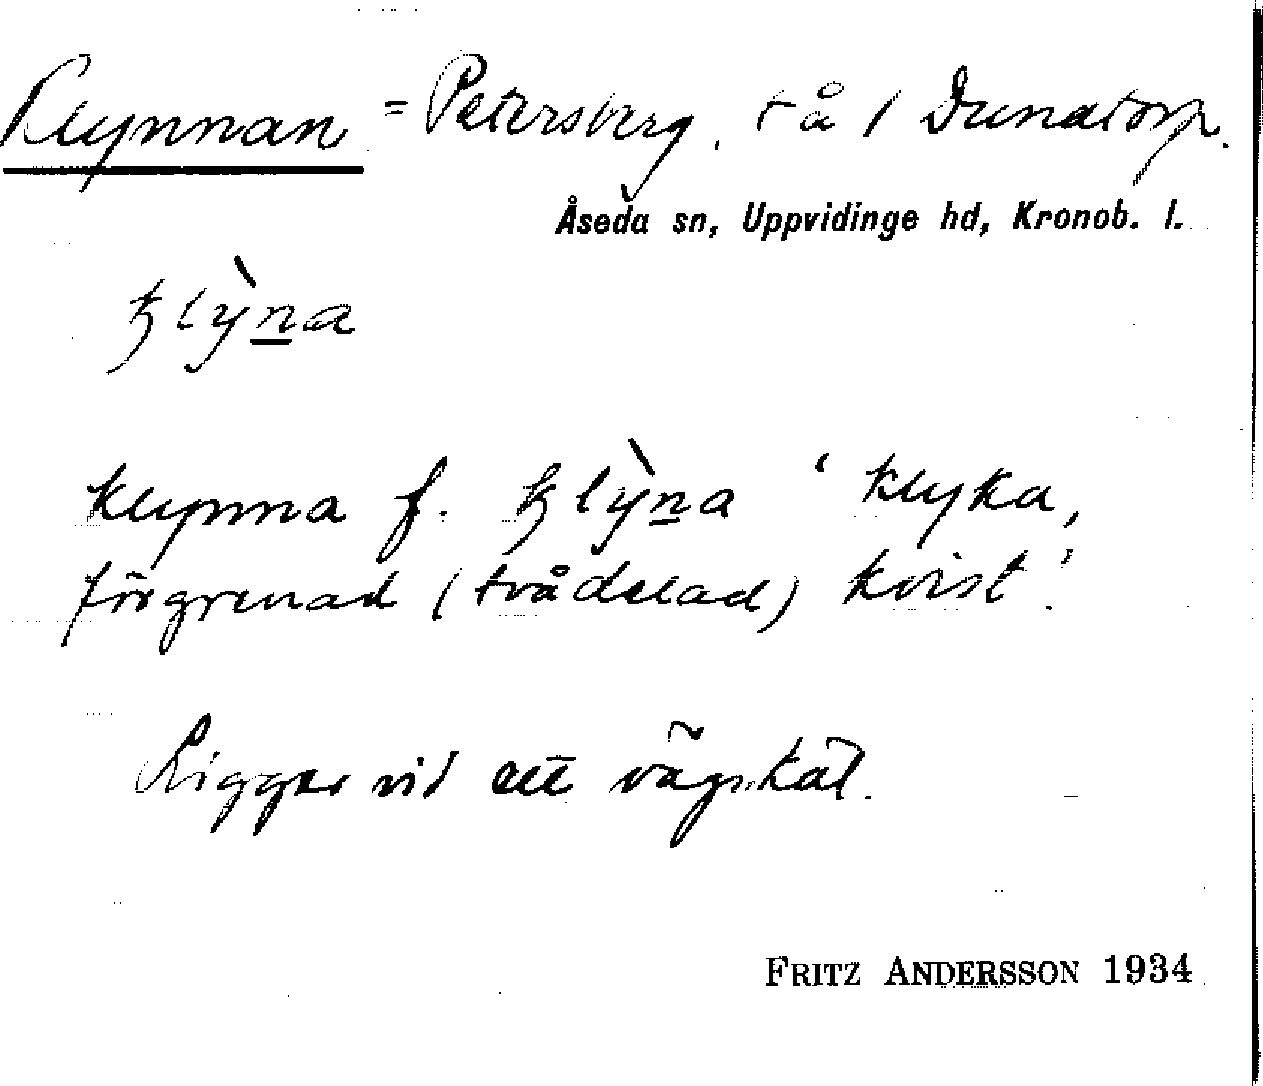 Klynnan = Petersberg, tå / Dunatorp.
Åseda sn, Uppvidinge hd, Kronob. l.
klỳna
klynna f. klỳna ‘klyka,
förgrenad (tvådelad) kvist.’
Ligger vid ett vägskäl.
FRITZ ANDERSSON 1934